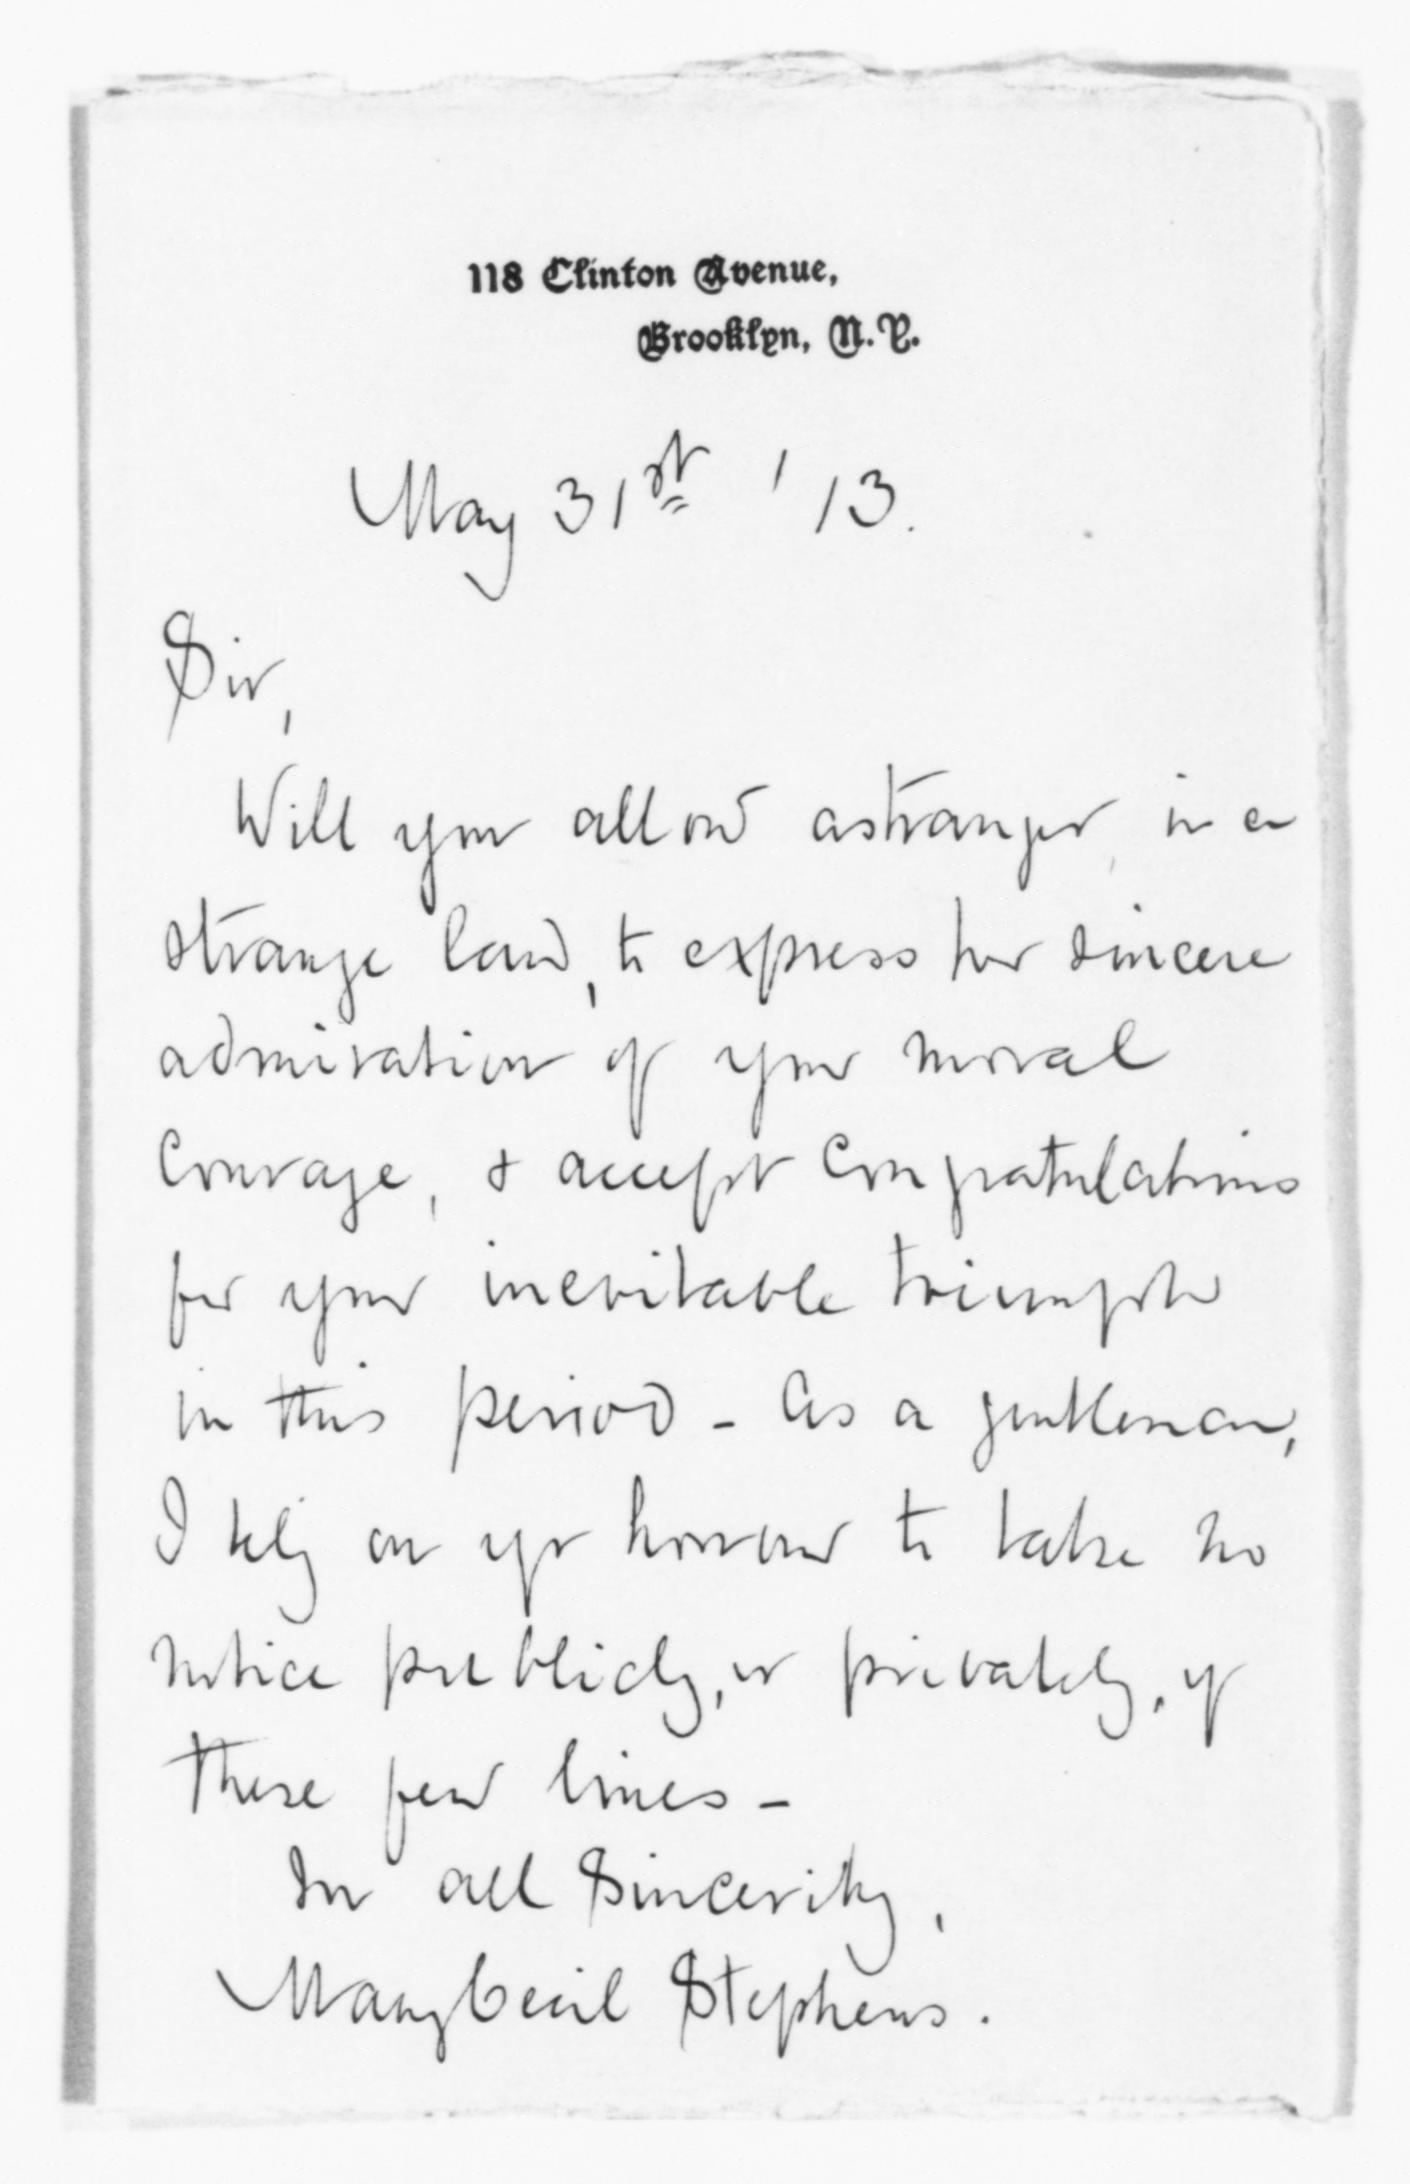 118 Clinton Avenue,
Brooklyn, N.Y.
May 31st '13.
Sir,
Will you allow a stranger, in a
strange land, to express her sincere
admiration of your moral
courage, & accept congratulations
for your inevitable triumph
in this period - As a gentleman,
I rely on yr honour to take no
notice publicly, or privately, of
these few lines -
In all Sincerity,
Mary Cecil Stephens.